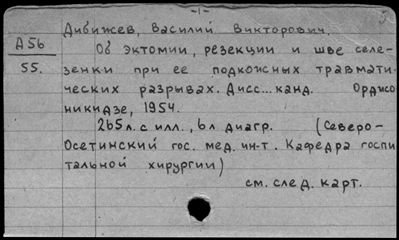 -1-
Дибижев, Василий Викторович.
А56
55.
Об эктомии, резекции и шве селе-
зенки при ее подкожных травмати-
ческих разрывах. Дисс... канд. Орджо
никидзе, 1954.
265л. с илл., 6л диагр. (Северо-
Осетинский гос. мед. ин-т. Кафедра госпи
тальной хирургии)
см. след. карт.